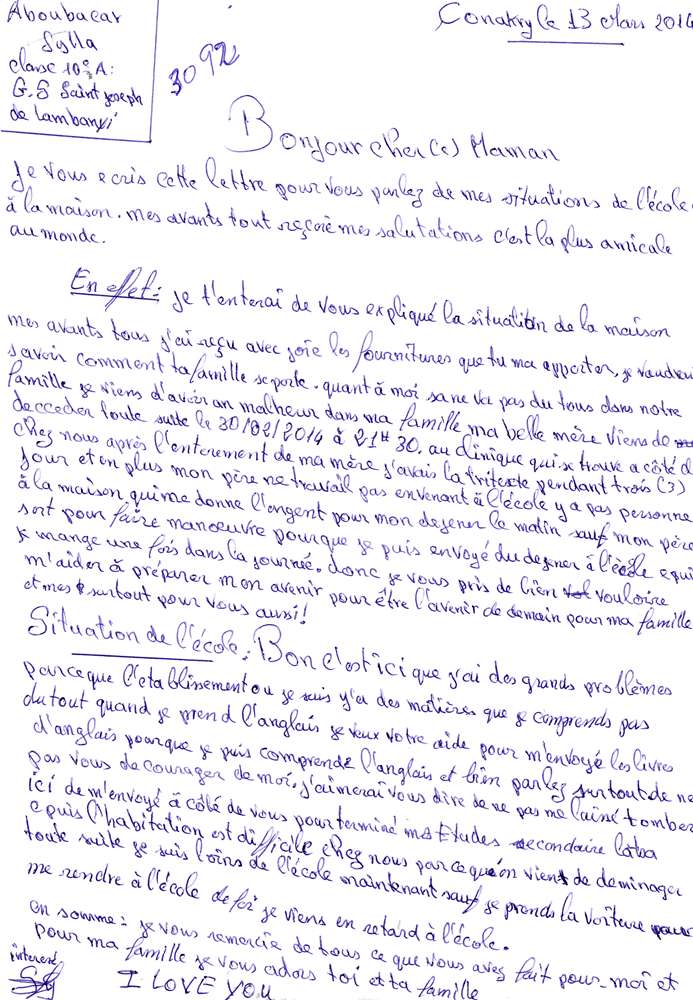 Aboubacar
Sylla
classe 10e A:
G.S Saint joseph
de Lambanyi
3092
Conakry le 13 Mars 2014
Bonjour cher(e) Maman
Je vous ecris cette lettre pour vous parlez de mes situations de l'école
à la maison. mes avants tout reçoie mes salutations c'est la plus amicale
au monde.
En effet: je t'enterai de vous expliqué la situation de la maison
mes avants tous j'ai reçu avec joie les fournitures que tu ma apporter, je vaudrei
savoir comment ta famille se porte. quant à moi sa ne va pas du tous dans notre
famille je viens d'avoir un malheur dans ma famille ma belle mère viens de
decceder toute suite le 30/02/2014 à 21H 30. au clinique qui se trouve a côté de
chez nous après l'enterement de ma mère j'avais la tritesse pendant trois (3)
jour et en plus mon père ne travail pas en venant à l'école y a pas personne
à la maison qui me donne l'argent pour mon dejener le matin sauf mon père
sort pour faire manoeuvre pourque je puis envoyé du dejener à l'école equi
je mange une fois dans la journée. donc je vous pris de bien vouloire
m'aider à préparer mon avenir pour être l'avenir de demain pour ma famille
et mes surtout pour vous aussi!
Situation de l'école: Bon c'est ici que j'ai des grands problèmes
parceque l'etablissement ou je suis y'a des matières que je comprends pas
du tout quand je prend l'anglais je veux votre aide pour m'envoyé les livres
d'anglais pourque je puis comprendz l'anglais et bien parlez surtout de ne
pas vous decourager de moi, j'aimerai vous dire de ne pas me lainé tomber
ici de m'envoyé à côté de vous pour terminé mes Etudes secondaire
epuis l'habitation est difficile chez nous parceque on viens de deminager
toute suite je suis loins de l'école maintenant sauf je prends la voiture pour
me rendre à l'école de foi je viens en retard à l'école.
en somme: je vous remercie de tous ce que vous avez fait pour moi et
pour ma famille je vous adors toi et ta famille
I LOVE YOU